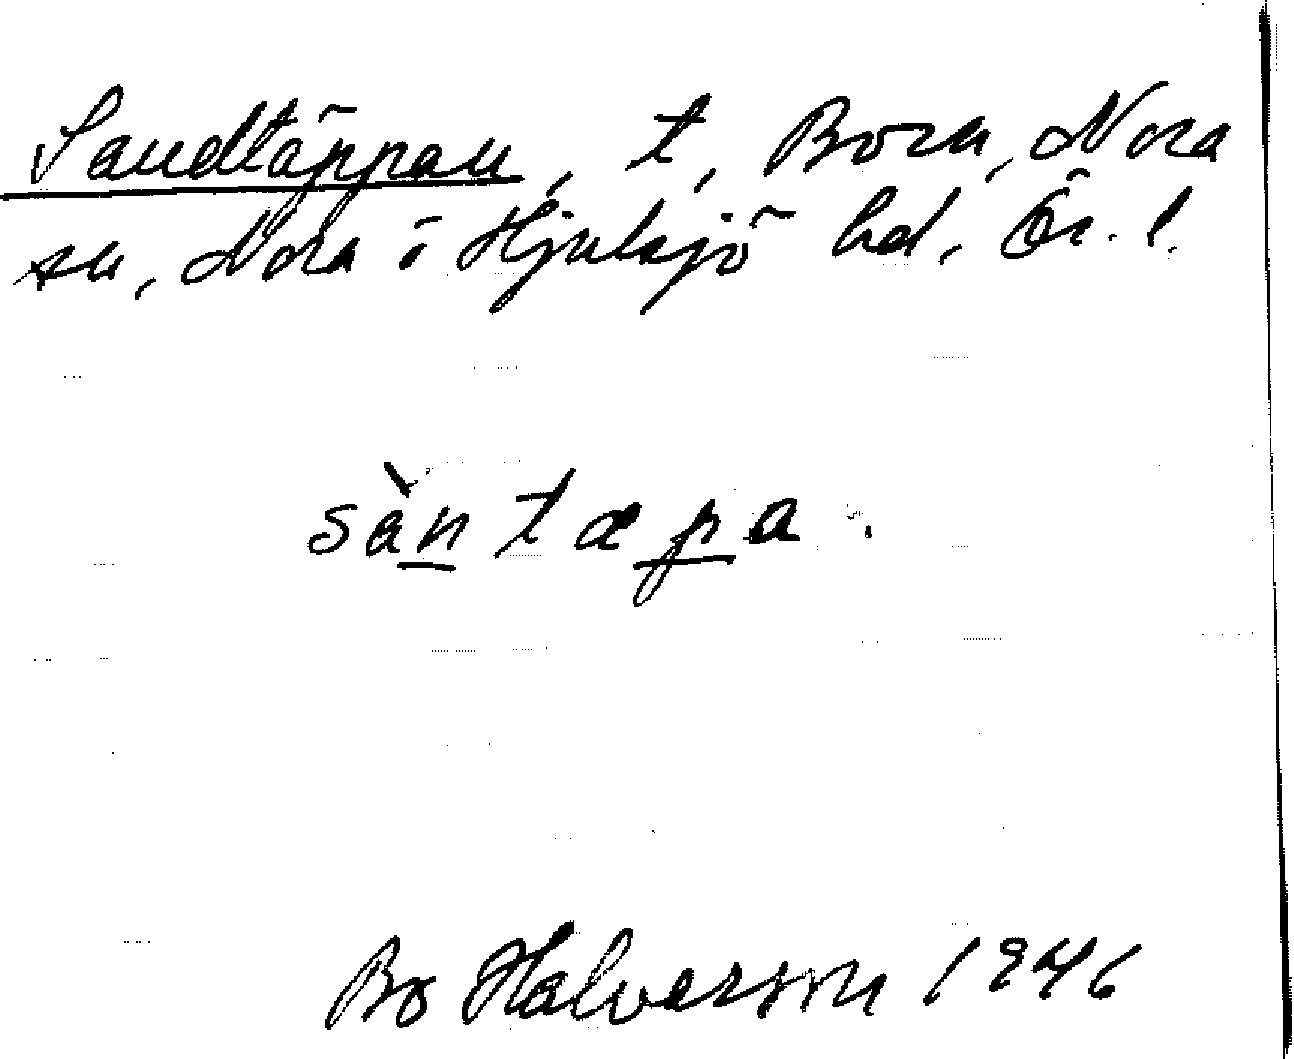 Sandtäppan, t, Born, Nora
sn, Nora o Hjulsjö hd, Ör. l.
sàntæpa.
Bo Halvarson 1946